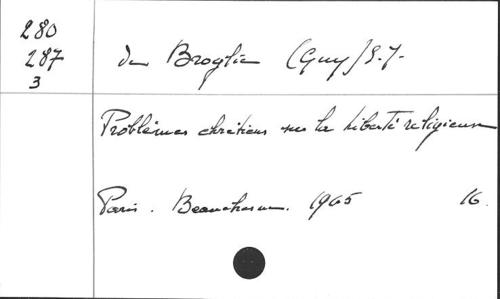 280
287
3
de Broglie (Guy) S.J.
Problèmes chrétiens sur la liberté religieuse
Paris. Beauchesne. 1965 16